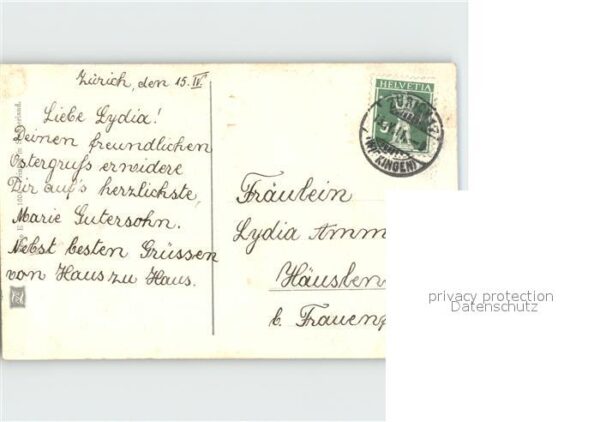 Zürich, den 15. IV.
Liebe Lydia!
Deinen freundlichen
Ostergruß erwidere
Dir auf's herzlichste,
Marie Gutersohn.
Nebst besten Grüssen
von Haus zu Haus.
HELVETIA
ZÜRICH
(WIPKINGEN)
Fräulein
Lydia Amm
Häuslen
b. Frauenf
privacy protection
Datenschutz